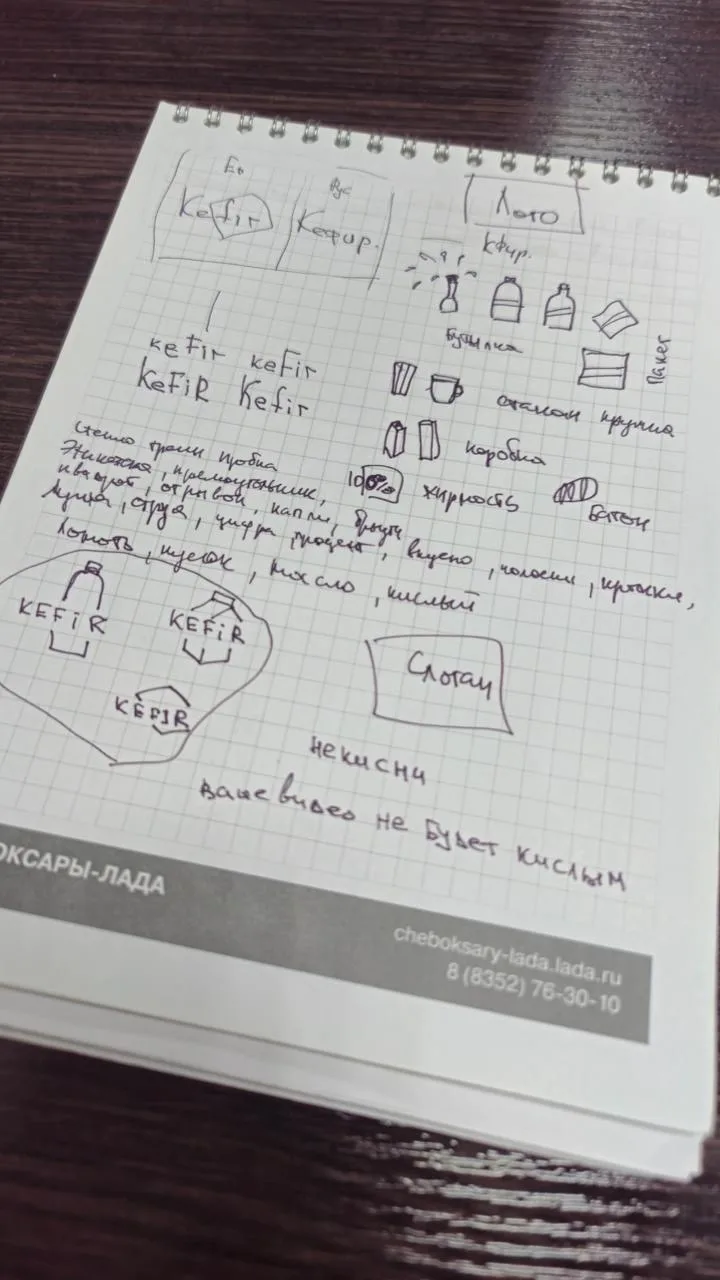 En
Рус
Kefir
Кефир.
Лого
Кфир.
Бутылка
Пакет
keFir keFir
KeFiR Kefir
стакан кружка
коробка
100% жирность
Батон
стекло грани пробка
Этикетка, прямоугольник,
квадрат, отрывок, капли, брызги
лужа, струя, цифра, процент, вкусно, колоски,
Ломоть, кусок, масло, кислый
KEFiR
KEFiR
KEFIR
Слоган
не кисни
ваше видео не будет кислым
ОКСАРЫ-ЛАДА
cheboksary-lada.lada.ru
8 (8352) 76-30-10